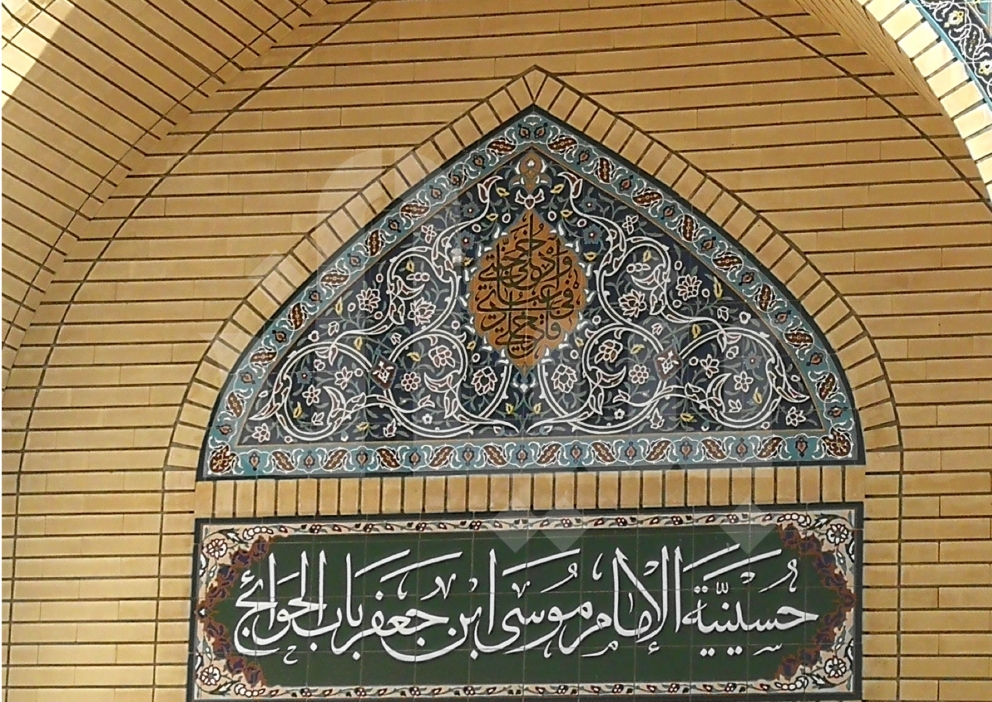 فادخلي في عبادي وادخلي جنتي
حُسَيْنِيَّة الإِمَام مُوسَى ابن جَعفَر بَاب الحَوَائج